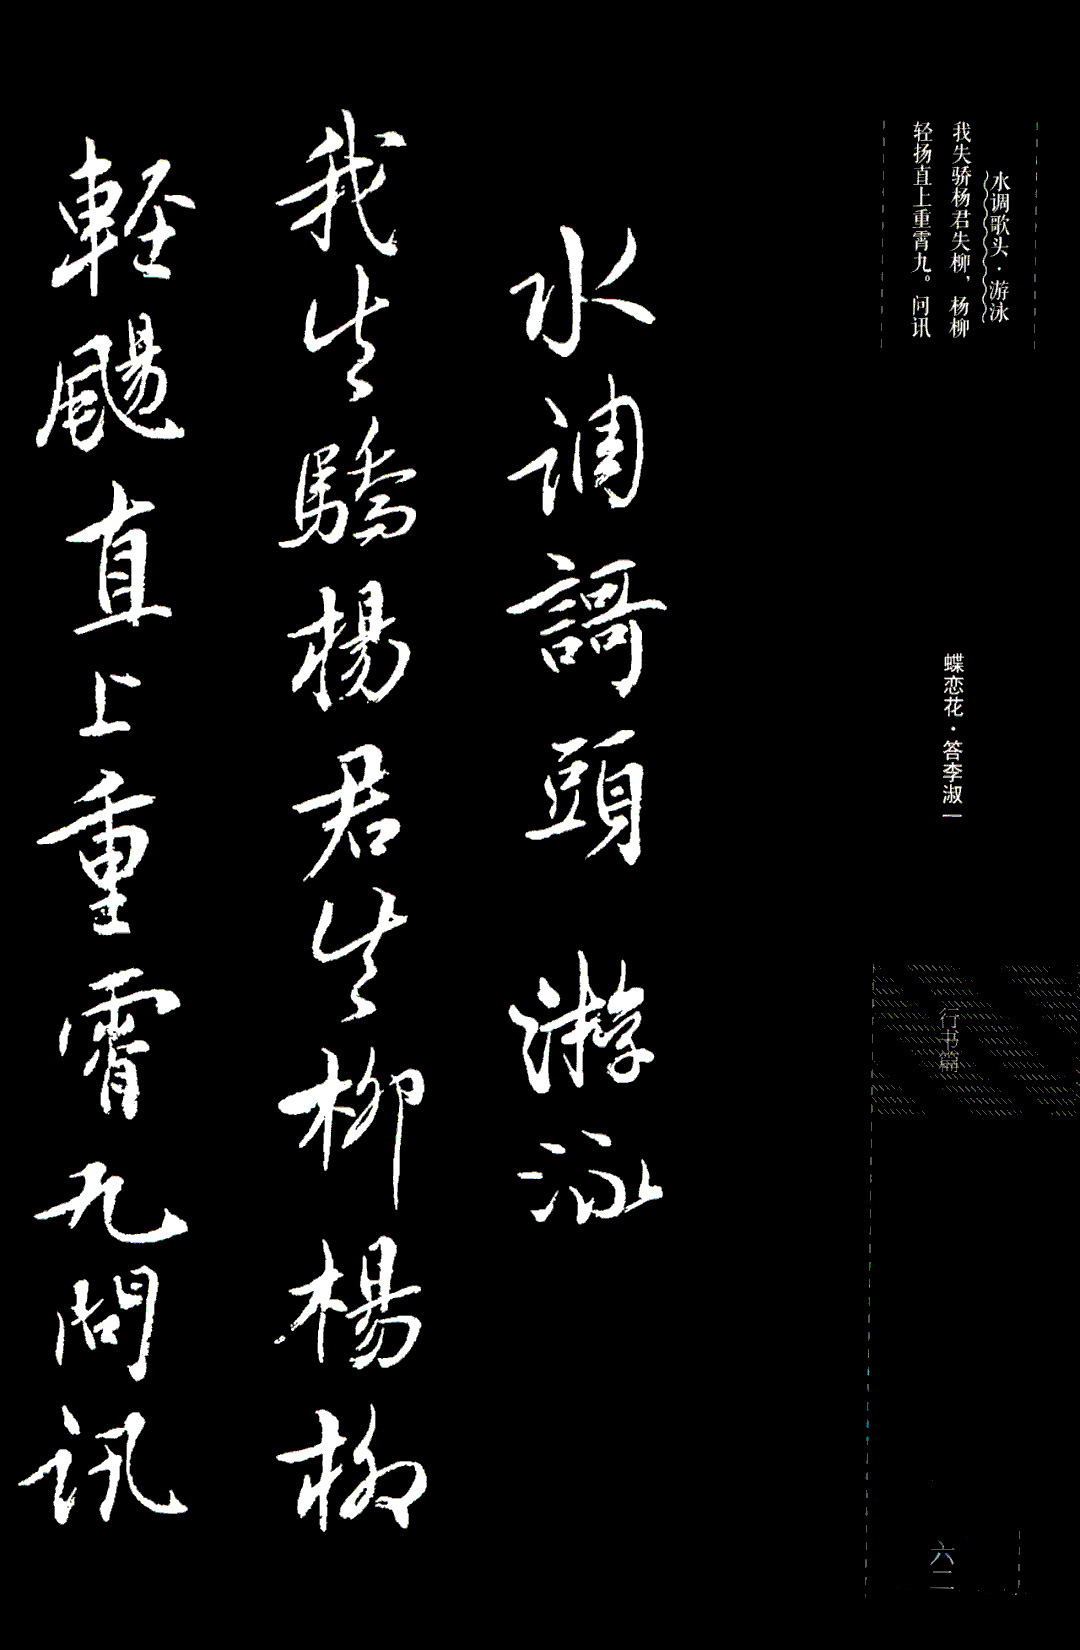 水调歌头·游泳
我失骄杨君失柳，杨柳
轻扬直上重霄九。问讯
蝶恋花·答李淑一
行书篇
六二
水调謌頭 游泳
我失驕楊君失柳楊柳
輕颺直上重霄九問訊